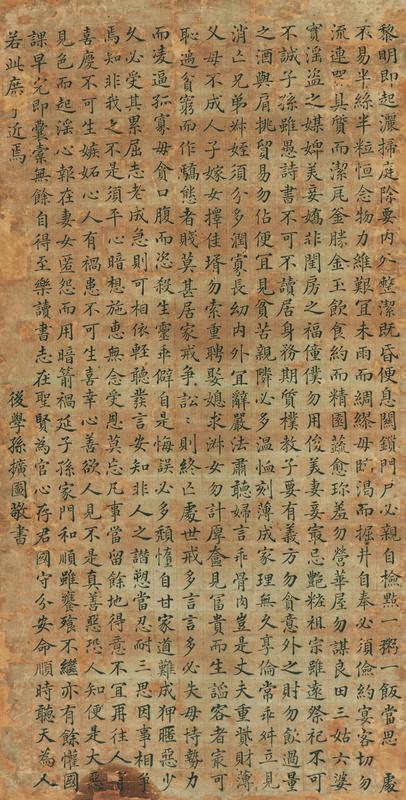 黎明即起灑掃庭除要內外整潔既昏便息關鎖門戶必親自檢點一粥一飯當思處
不易半絲半粒恒念物力維艱宜未雨而綢繆毋臨渴而掘井自奉必須儉約宴客切勿
流連器具質而潔瓦缶勝金玉飲食約而精園蔬愈珍羞勿營華屋勿謀良田三姑六婆
實淫盜之媒婢美妾嬌非閨房之福僮僕勿用俊美妻妾最忌艷粧祖宗雖遠祭祀不可
不誠子孫雖愚詩書不可不讀居身務期質樸教子要有義方勿貪意外之財勿飲過量
之酒與肩挑貿易勿佔便宜見貧苦親鄰必多溫恤刻薄成家理無久享倫常乖舛立見
消亡兄弟姊姪須分多潤寡長幼內外宜辭嚴法肅聽婦言乖骨肉豈是丈夫重貲財薄
父母不成人子嫁女擇佳壻勿索重聘娶媳求淑女勿計厚奩見富貴而生諂容者最可
恥遇貧窮而作驕態者賤莫甚居家戒爭訟訟則終凶處世戒多言言多必失毋恃勢力
而凌逼孤寡毋貪口腹而恣殺生靈乖僻自是悔誤必多頹惰自甘家道難成狎暱惡少
久必受其累屈志老成急則可相依輕聽發言安知非人之譖愬當忍耐三思因事相爭
焉知非我之不是須平心暗想施惠無念受恩莫忘凡事當留餘地得意不宜再往人有
喜慶不可生嫉妬心人有禍患不可生喜幸心善欲人見不是真善惡恐人知便是大惡
見色而起淫心報在妻女匿怨而用暗箭禍延子孫家門和順雖饔飧不繼亦有餘懽國
課早完即囊橐無餘自得至樂讀書志在聖賢為官心存君國守分安命順時聽天為人
若此庶乎近焉
後學孫擴圖敬書